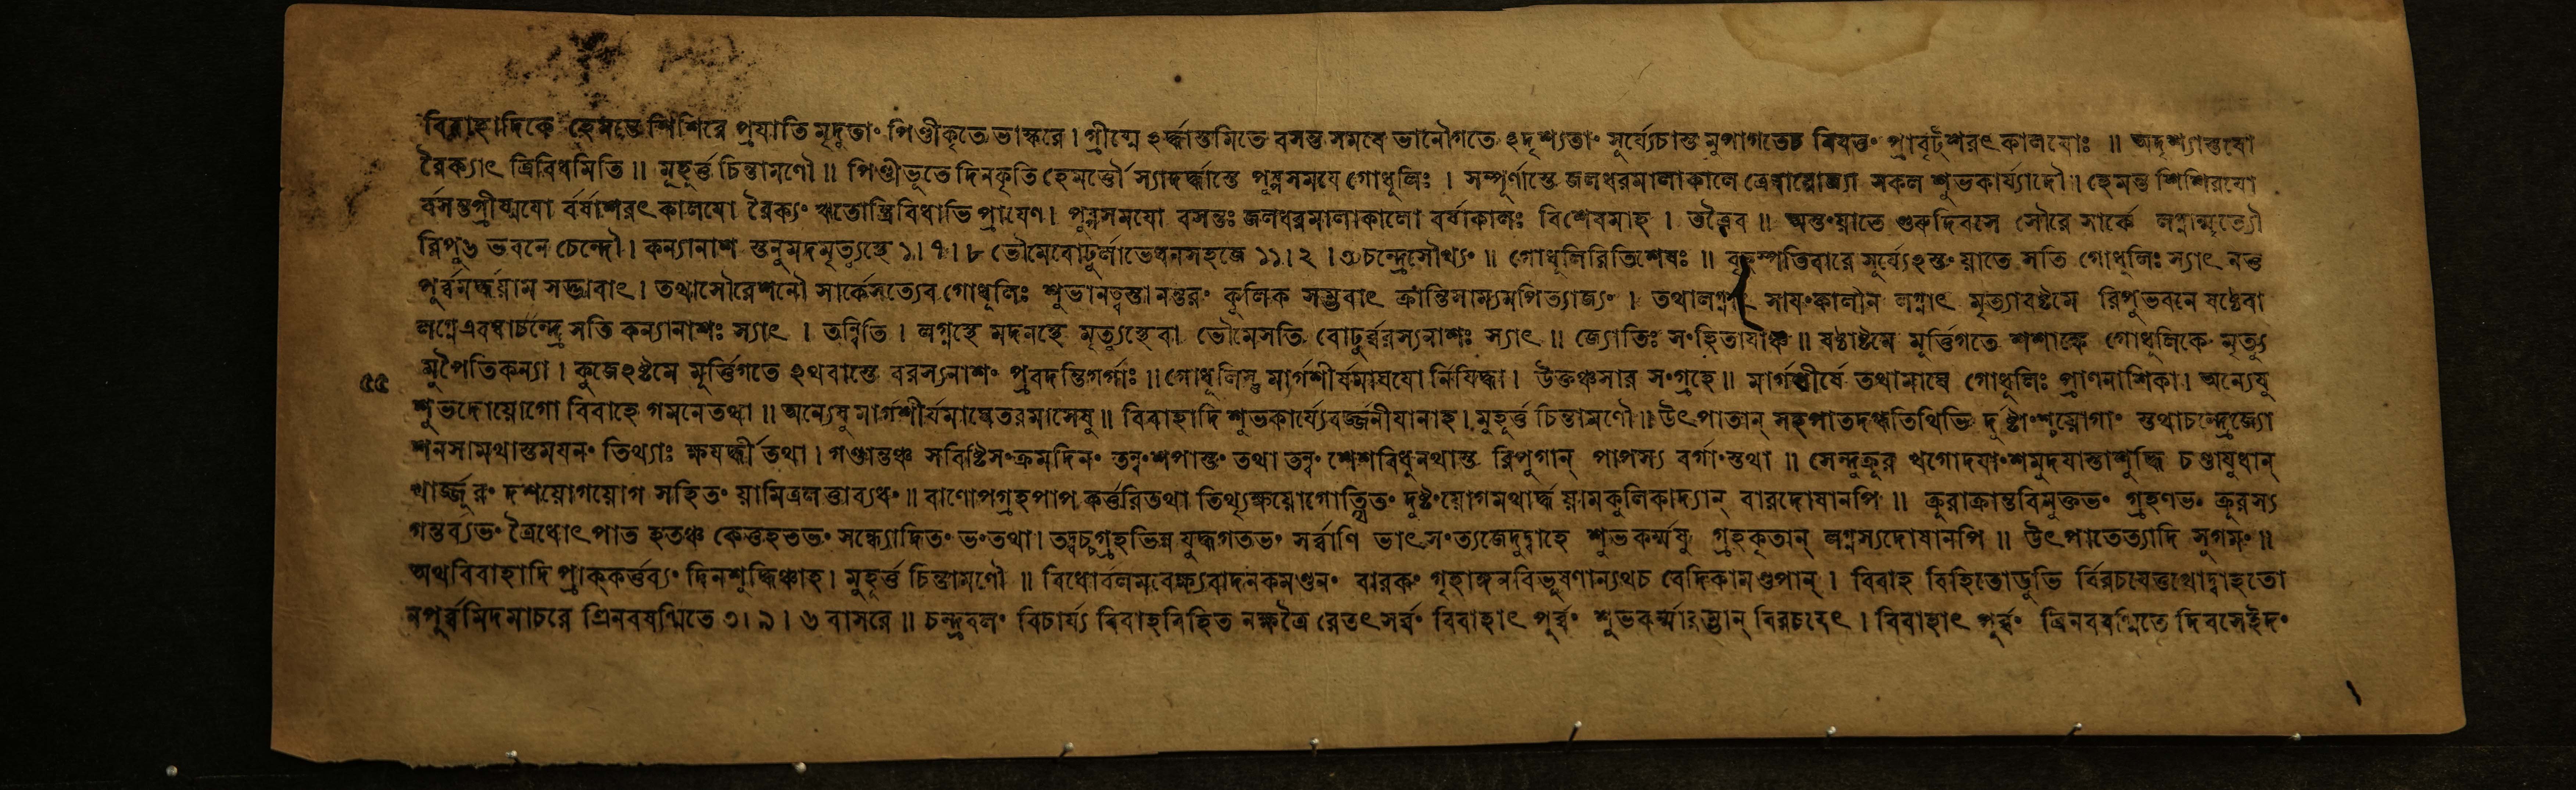 বিবাহাদিকে হেমন্তে শিশিরে প্রযাতি মৃদুতাং পিণ্ডীকৃতে ভাস্করে। গ্রীষ্মেঽর্দ্ধাস্তমিতে বসন্ত সমযে ভানৌগতেঽদৃশ্যতাং সূর্য্যেচাস্ত মুপাগতেচ নিযতং প্রাবৃট্শরৎ কালযোঃ ॥ অদৃশ্যাস্তযো
রৈক্যাৎ ত্রিবিধমিতি॥ মূহূর্ত্ত চিন্তামণৌ॥ পিণ্ডীভূতে দিনকৃতি হেমর্ত্তৌ স্যাদর্দ্ধাস্তে পূষ্ণসমযে গোধূলিঃ । সম্পূর্ণাস্তে জলধরমালাকালে ত্রেধাযোজ্যা সকল শুভকার্য্যাদৌ॥ হেমন্ত শিশিরযো
র্বসন্তগ্রীষ্মযো র্বর্ষাশরৎ কালযো রৈক্যং ঋতোস্ত্রিবিধাভি প্রাযেণ। পূষ্ণসমযো বসন্তঃ জলধরমালাকালো বর্ষাকালঃ বিশেষমাহ । তত্রৈব॥ অস্তংয়াতে গুরুদিবসে সৌরে সার্কে লগ্নান্মৃত্যৌ
রিপু৬ ভবনে চেন্দৌ। কন্যানাশ স্তনুমদমৃত্যুস্থে ১। ৭। ৮ ভৌমেবোঢুর্লাভেধনসহজে ১১। ২ । ৩ চন্দ্রেসৌখ্যং॥ গোধূলিরিতিশেষঃ॥ বৃহস্পতিবারে সূর্য্যেঽস্তংয়াতে সতি গোধূলিঃ স্যাৎ নতু
পূর্ব্বমর্দ্ধয়াম সদ্ভাবাৎ। তথাসৌরেশনৌ সার্কেসত্যেব গোধূলিঃ শুভানত্বস্তানন্তরং কুলিক সম্ভবাৎ ক্রান্তিসাম্যমপিত্যাজ্যং । তথালগ্নাৎ সাযংকালীন লগ্নাৎ মৃত্যাবষ্টমে রিপুভবনে ষষ্ঠেবা
লগ্নেএবম্বাচন্দ্রে সতি কন্যানাশঃ স্যাৎ । তন্বিতি। লগ্নস্থে মদনস্থে মৃত্যুস্থেবা ভৌমেসতি বোঢুর্ব্বরস্যনাশঃ স্যাৎ॥ জ্যোতিঃ সংহিতাযাঞ্চ॥ ষষ্ঠাষ্টমে মূর্ত্তিগতে শশাঙ্কে গোধূলিকে মৃত্যু
৫৫ মুপৈতিকন্যা। কুজেঽষ্টমে মূর্ত্তিগতেঽথবাস্তে বরস্যনাশং প্রবদন্তিগর্গাঃ॥গোধূলিস্তু মার্গশীর্ষমাঘযো র্নিষিদ্ধা। উক্তঞ্চসার সংগ্রহে॥ মার্গশীর্ষে তথামাঘে গোধূলিঃ প্রাণনাশিকা। অন্যেষু
শুভদোয়োগো বিবাহে গমনেতথা॥ অন্যেষু মার্গশীর্ষমাঘেতরমাসেষু॥ বিবাহাদি শুভকার্য্যেবর্জ্জনীযানাহ। মূহূর্ত্ত চিন্তামণৌ॥ উৎপাতান্ সহপাতদগ্ধতিথিভি র্দুষ্টাংশ্চয়োগাং স্তথাচন্দ্রেজ্যো
শনসামথাস্তমযনং তিথ্যাঃ ক্ষযর্দ্ধীতথা। গণ্ডান্তঞ্চ সবিষ্টিসংক্রমদিনং তন্বংশপাস্তং তথা তন্বংশেশবিধূনথাস্ত রিপুগান্ পাপস্য বর্গাংস্তথা॥ সেন্দুক্রূর খগোদযাংশমুদযাস্তাশুদ্ধি চণ্ডাযুধান্
খার্জ্জূরং দশয়োগয়োগ সহিতং য়ামিত্রলত্তাব্যধং॥ বাণোপগ্রহপাপ কর্ত্তরিতথা তিথ্যৃক্ষয়োগোত্থিতং দুষ্টংয়োগমথার্দ্ধ য়ামকুলিকাদ্যান্ বারদোষানপি॥ ক্রূরাক্রান্তবিমুক্তভং গ্রহণভং ক্রূরস্য
গন্তব্যভং ত্রৈধোৎপাত হতঞ্চ কেতুহতভং সন্ধ্যোদিতং ভংতথা। তদ্বচ্চগ্রহভিন্ন যুদ্ধগতভং সর্ব্বাণি ভাৎসংত্যজেদুদ্বাহে শুভকর্ম্মষু গ্রহকৃতান্ লগ্নস্যদোষানপি॥ উৎপাতেত্যাদি সুগমং॥
অথবিবাহাদি প্রাক্কর্ত্তব্যং দিনশুদ্ধিঞ্চাহ। মূহূর্ত্ত চিন্তামণৌ॥ বিধোর্বলমবেক্ষ্যবাদলনকণ্ডনং বারকং গৃহাঙ্গনবিভূষণান্যথচ বেদিকামণ্ডপান্। বিবাহ বিহিতোডুভি র্বিরচযেত্তথোদ্বাহতো
নপূর্ব্বমিদমাচরে ত্রিনবষণ্মিতে ৩। ৯। ৬ বাসরে॥ চন্দ্রবলং বিচার্য্য বিবাহবিহিত নক্ষত্রৈ রেতৎসর্ব্বং বিবাহাৎ পূর্ব্বং শুভকর্ম্মারম্ভান্ বিরচযেৎ। বিবাহাৎ পূর্ব্বং ত্রিনবষণ্মিতে দিবসেইদং